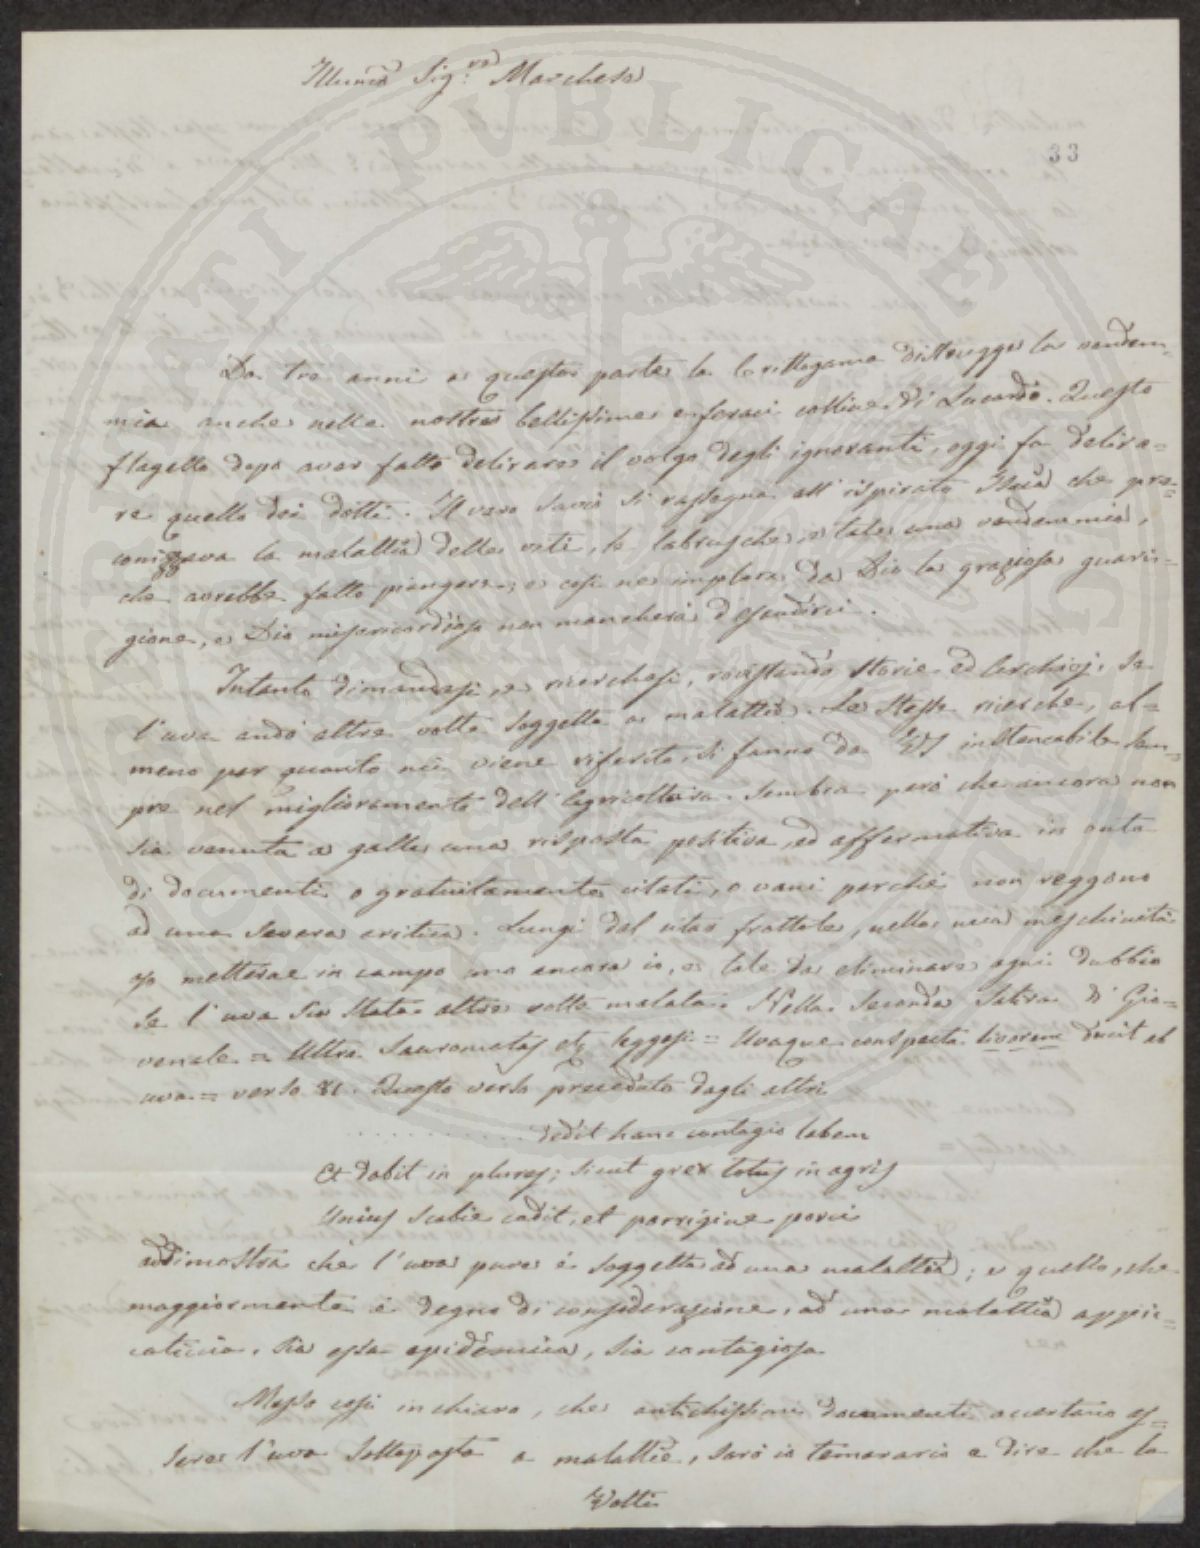 Illmo Sig.re Marchese
33
Da tre anni a questa parte la Crittogama distrugge la vendem-
mia anche nelle nostre bellissime e feraci colline di Lucardo. Questo
flagello dopo aver fatto delirare il volgo degli ignoranti, oggi fa delira=
re quello dei dotti. Il vero savio si rassegna all' ispirato Isaia che pre=
conizzava la malattia delle viti, le labrusche, e tale una vendemmia,
che avrebbe fatto piangere; e così ne implora da Dio la graziosa guari-
gione, e Dio misericordioso non mancherà d'esaudirci.
Intanto dimandasi, e ricercasi, rovistando storie ed Archivj, se
l'uva andò altre volte soggetta a malattie. Le stesse ricerche, al=
meno per quanto mi viene riferito, si fanno da VS instancabile sem=
pre nel miglioramento dell' Agricoltura. Sembra però che ancora non
sia venuta a galla una risposta positiva, ed affermativa in onta
di documenti o gratuitamente citati, o vani perchè non reggono
ad una severa critica. Lungi dal citar frottole, nella mia meschinità
ne metterò in campo uno ancora io, e tale da eliminare ogni dubbio
se l'uva sia stata altre volte malata. Nella seconda Satira di Gio=
venale = Ultra Sauromatas etc leggesi = Uvaque conspecta livorem ducit ab
uva = verso 81. Questo verso preceduto dagli altri
. . . . . . . . . . . . dedit hanc contagio labem
Et dabit in plures; sicut grex totus in agris
Unius scabie cadit, et porrigine porci
addimostra che l'uva pure è soggetta ad una malattia; e quello, che
maggiormente è degno di considerazione, ad una malattia appic=
caticcia, sia essa epidemica, sia contagiosa
Messo così in chiaro, che antichissimi documenti accertano es=
sere l'uva sottoposta a malattie, sarò io temerario a dire che la
Volti
CONSERVATI PUBLICAE